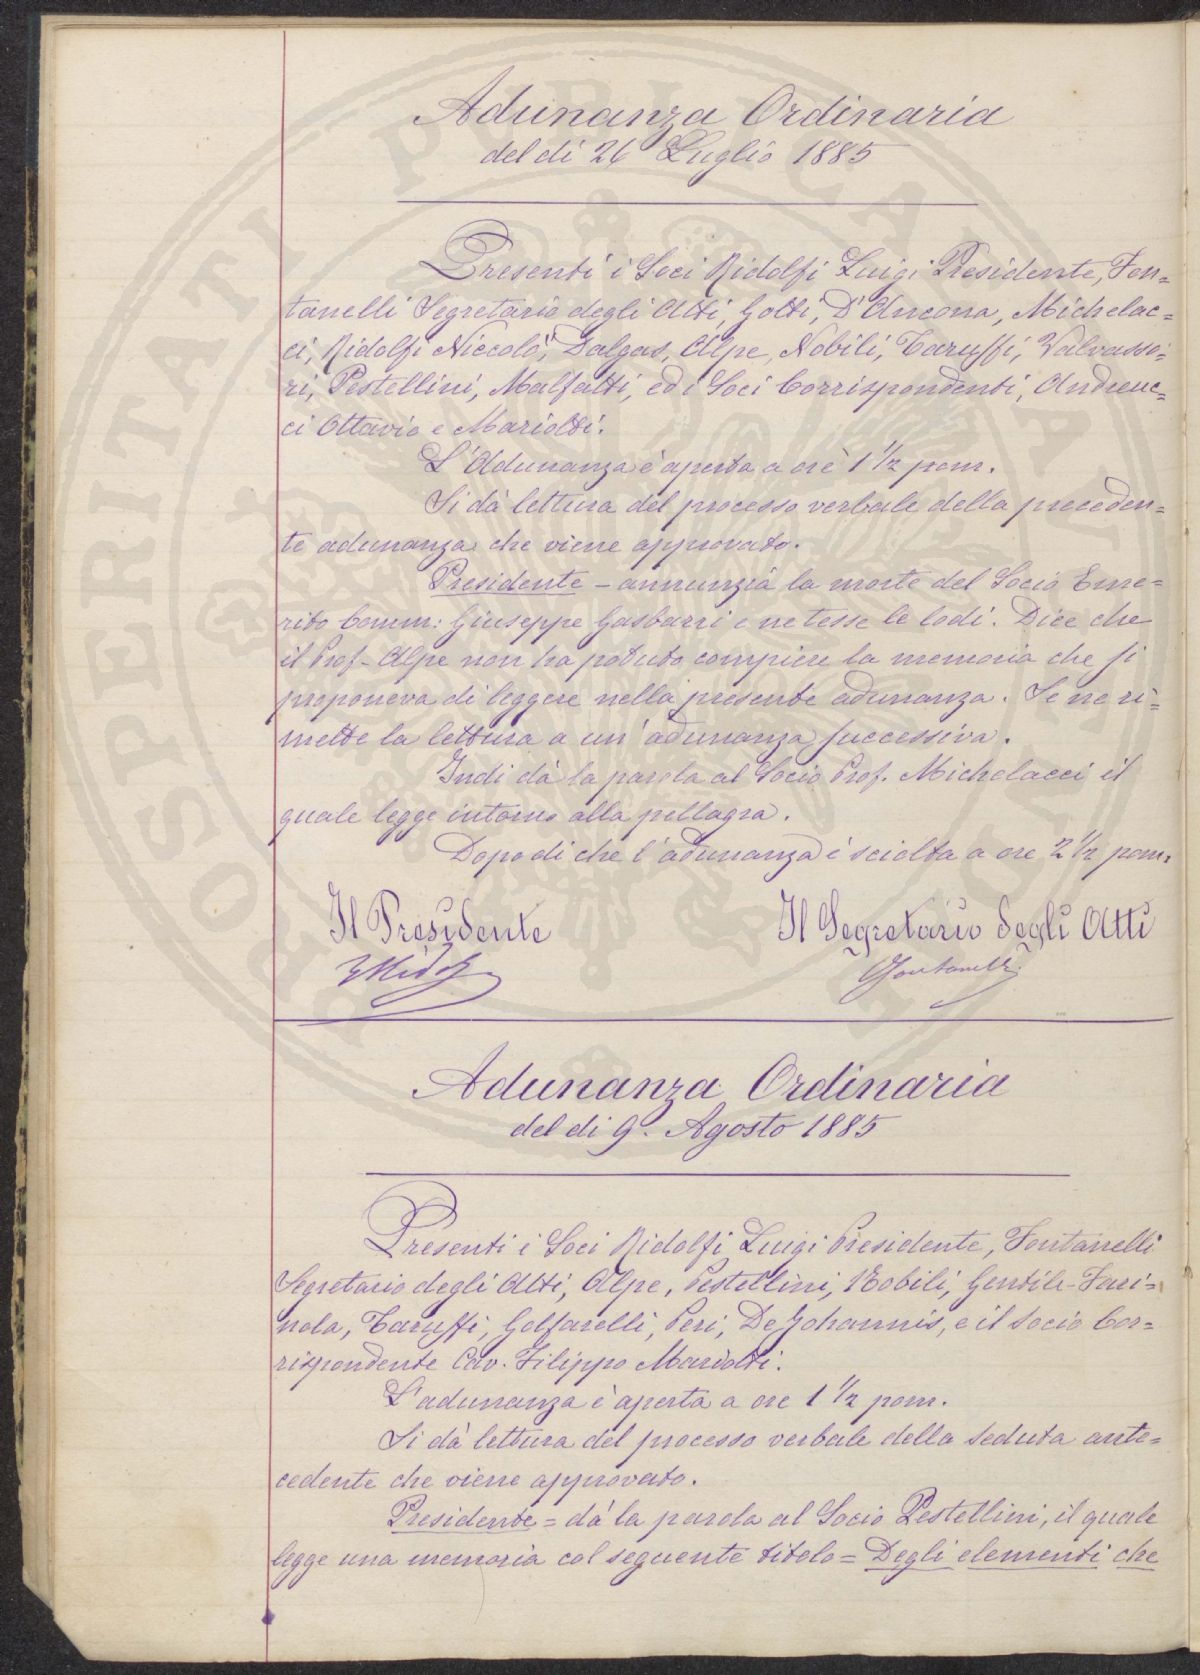 Adunanza Ordinaria
del dì 26 Luglio 1885
Presenti i Soci Ridolfi Luigi Presidente, Fon=
tanelli Segretario degli Atti, Gotti, D'Ancona, Michelac=
ci, Ridolfi Niccolò, Dalgas, Alpe, Nobili, Taruffi, Valvasso=
ri, Pestellini, Malfatti, ed i Soci Corrispondenti, Andreuc=
ci Ottavio e Mariotti.
L'Adunanza è aperta a ore 1 1/2 pom.
Si dà lettura del processo verbale della preceden=
te adunanza che viene approvato.
Presidente - annunzia la morte del Socio Eme=
rito Comm: Giuseppe Gasbarri e ne tesse le lodi. Dice che
il Prof. Alpe non ha potuto compiere la memoria che si
proponeva di leggere nella presente adunanza. Se ne ri=
mette la lettura a un'adunanza successiva.
Indi dà la parola al Socio Prof. Michelacci il
quale legge intorno alla pellagra.
Dopo di che l'adunanza è sciolta a ore 2 1/2 pom.
Il Presidente Il Segretario degli Atti
LRidolfi Fontanelli
Adunanza Ordinaria
del dì 9. Agosto 1885
Presenti i Soci Ridolfi Luigi Presidente, Fontanelli
Segretario degli Atti, Alpe, Pestellini, Nobili, Gentile-Fari=
nola, Taruffi, Golfarelli, Peri, De Johannis, e il Socio Cor=
rispondente Cav. Filippo Mariotti.
L'adunanza è aperta a ore 1 1/2 pom.
Si dà lettura del processo verbale della seduta ante=
cedente che viene approvato.
Presidente = dà la parola al Socio Pestellini, il quale
legge una memoria col seguente titolo = Degli elementi che
PROSPERITATI PUBLICAE AUGENDAE